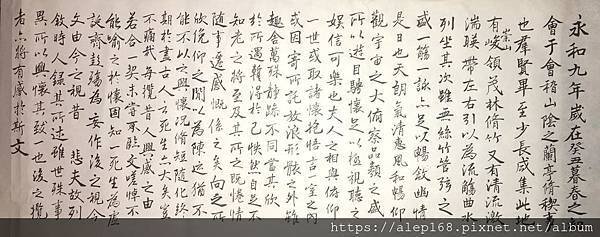 永和九年歲在癸丑暮春之初
會于會稽山陰之蘭亭脩稧事
也羣賢畢至少長咸集此地
崇山
有峻領茂林脩竹又有清流激
湍暎帶左右引以為流觴曲水
列坐其次雖無絲竹管弦之
盛一觴一詠亦足以暢敘幽情
是日也天朗氣清惠風和暢仰
觀宇宙之大俯察品類之盛
所以遊目騁懷足以極視聽之
娛信可樂也夫人之相與俯仰
一世或取諸懷抱悟言一室之內
或因寄所託放浪形骸之外雖
趣舍萬殊靜躁不同當其欣
於所遇暫得於己怏然自足不
知老之將至及其所之既惓情
隨事遷感慨係之矣向之所
欣俛仰之閒以為陳迹猶不
能不以之興懷況脩短隨化終
期於盡古人云死生亦大矣豈
不痛哉每攬昔人興感之由
若合一契未嘗不臨文嗟悼不
能喻之於懷固知一死生為虛
誕齊彭殤為妄作後之視今
亦由今之視昔 悲夫故列
敘時人錄其所述雖世殊事
異所以興懷其致一也後之攬
者亦將有感於斯文
https://alep168.pixnet.net/album